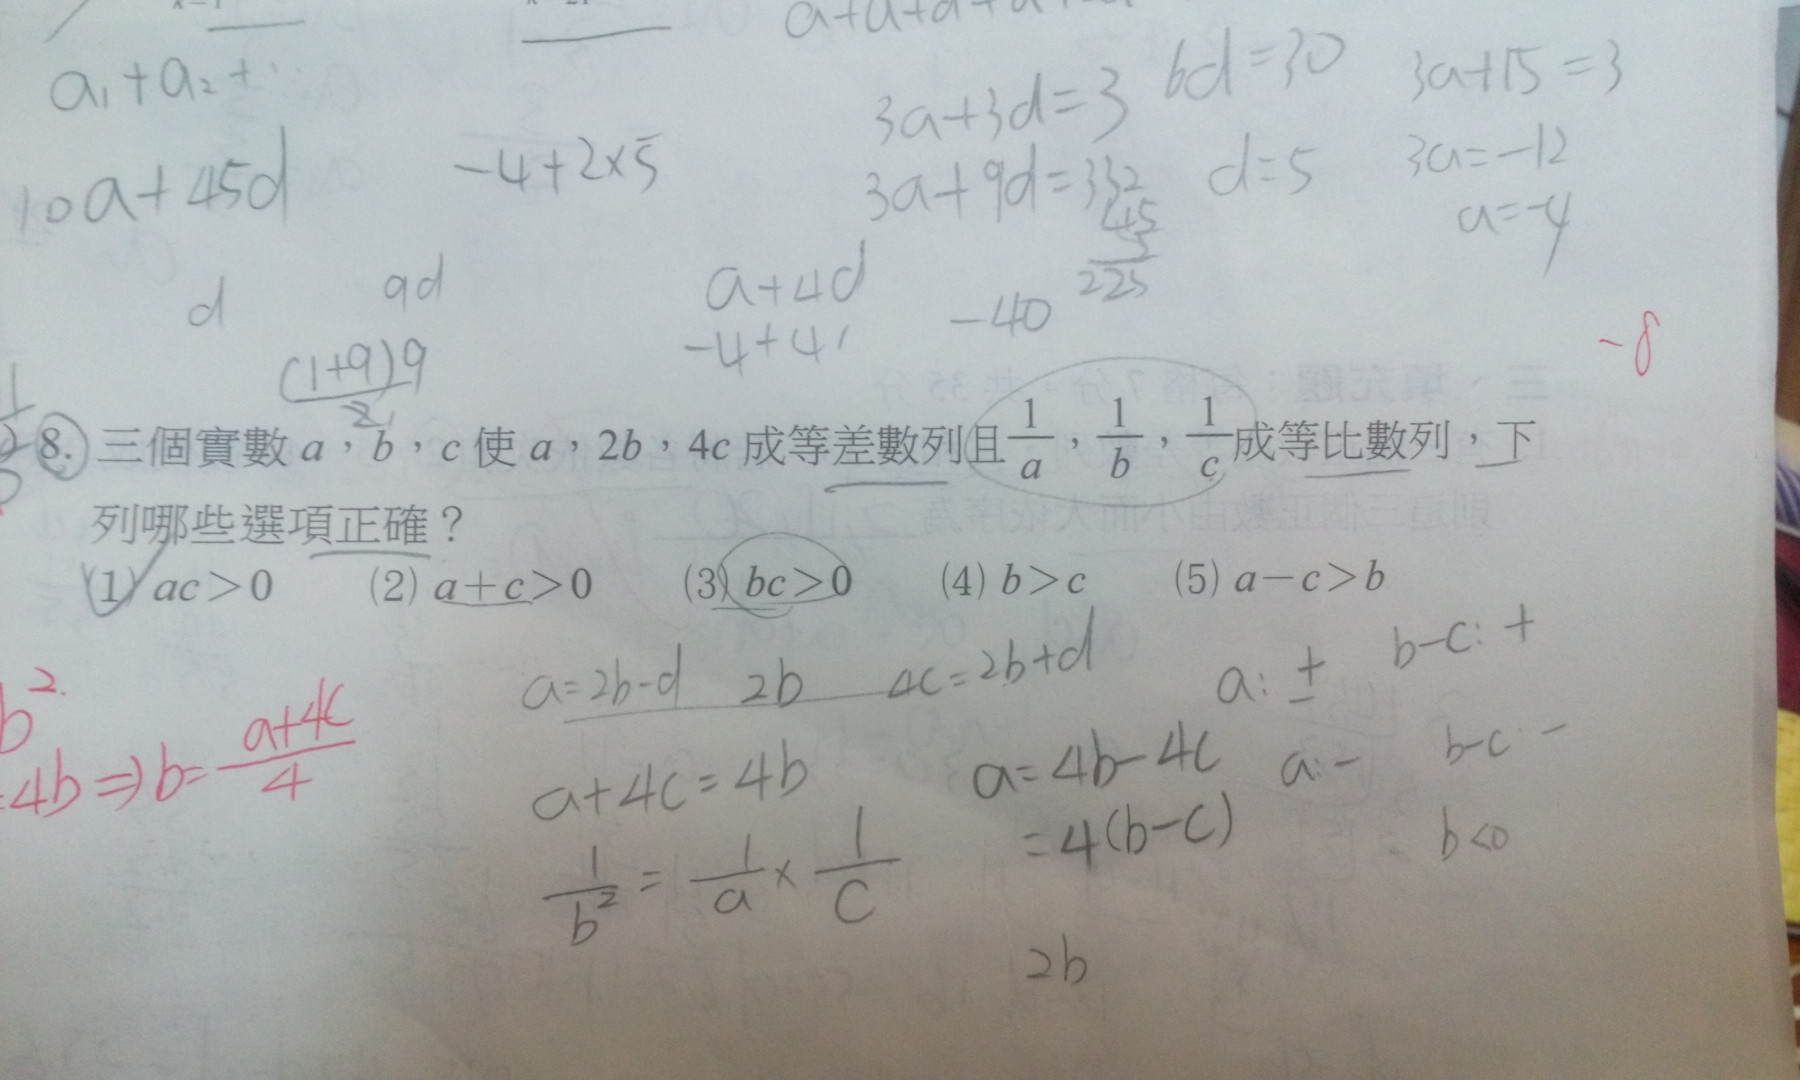 a+a+a+a+
a₁+a₂+
3a+3d=3
6d=30
3a+15=3
10a+45d
-4+2×5
3a+9d=33
d=5
3a=-12
a=-4
45
5
225
d
9d
a+4d
-40
-4+4
(1+9)9
2
-8
8. 三個實數 a,b,c 使 a,2b,4c 成等差數列且 1/a,1/b,1/c 成等比數列,下
列哪些選項正確?
(1) ac>0 (2) a+c>0 (3) bc>0 (4) b>c (5) a-c>b
b².
=4b⇒b=(a+4c)/4
a=2b-d 2b 4c=2b+d
a: ± b-c: +
a+4c=4b
a=4b-4c
a: - b-c: -
=4(b-c)
b<0
1/b² = 1/a × 1/c
2b